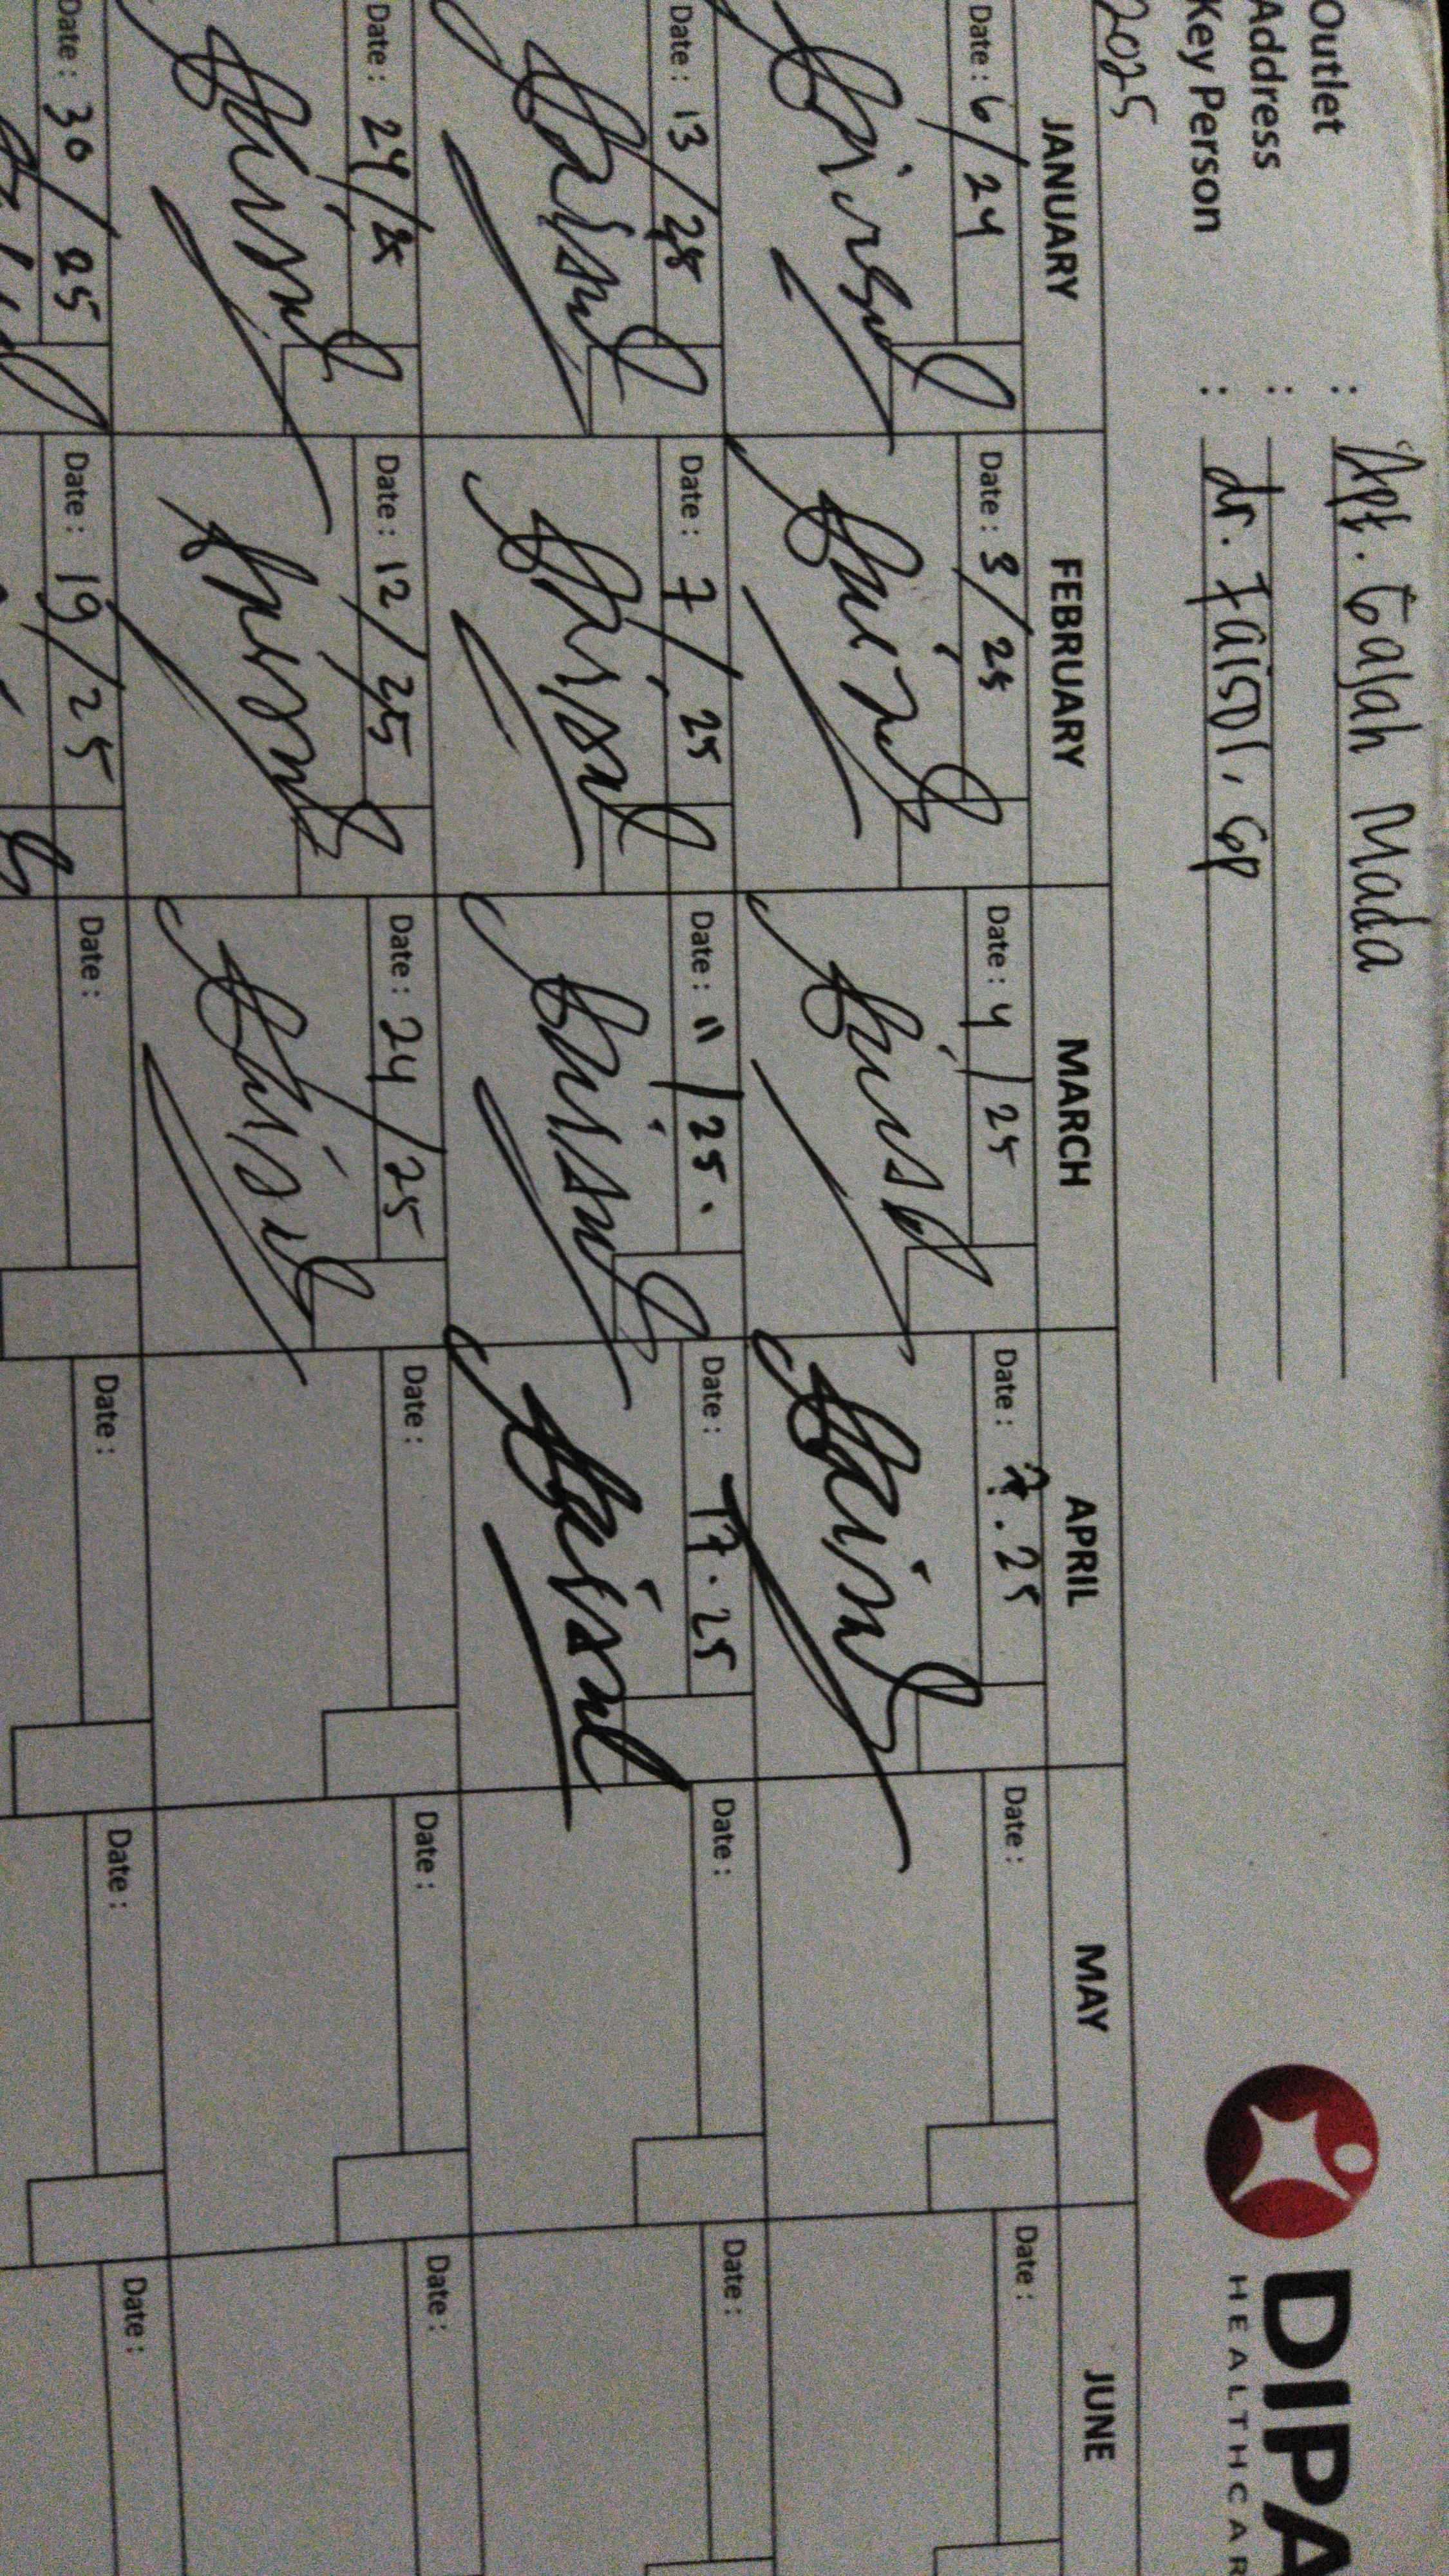 Outlet : Apt. Gajah Mada
Address :
Key Person : dr. Faisol, GP
DIPA
HEALTHCAR
2025
JANUARY FEBRUARY MARCH APRIL MAY JUNE
Date : 6/24 Date : 3/25 Date : 4/25 Date : 7.25 Date : Date :
Date : 13/25 Date : 7/25 Date : 11/25. Date : 17.25 Date : Date :
Date : 24/25 Date : 12/25 Date : 24/25 Date : Date : Date :
Date : 30/25 Date : 19/25 Date : Date : Date : Date :